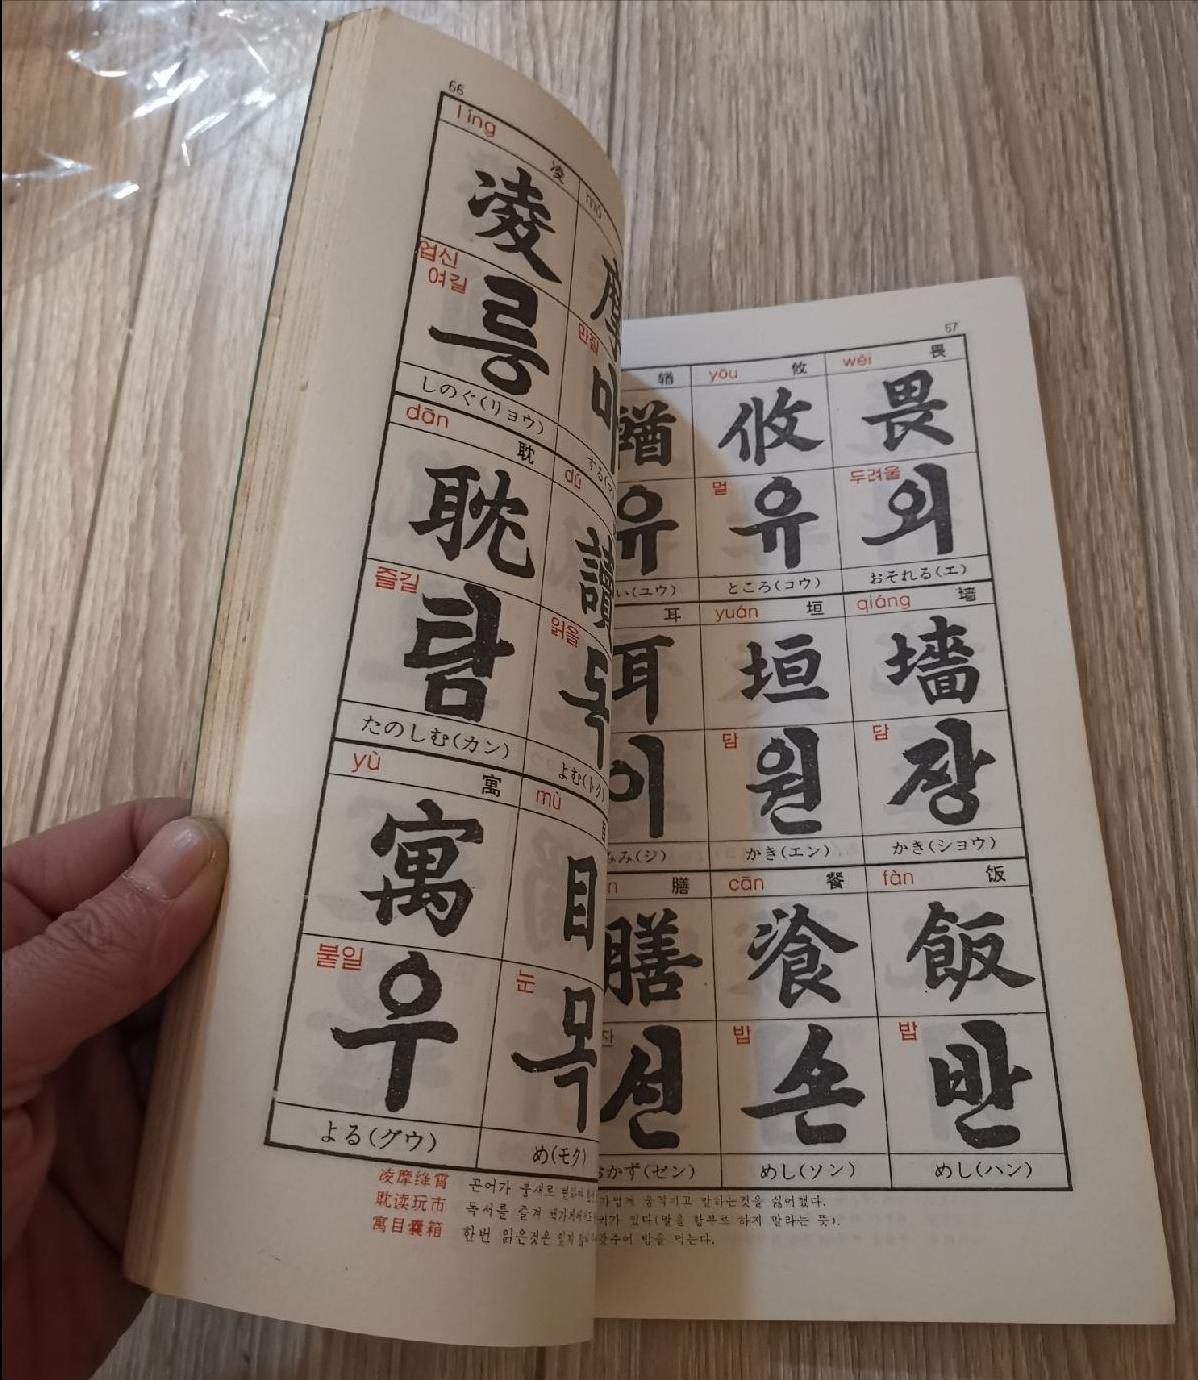 66
líng 凌
mó
凌 摩
업신
여길
릉
민질
しのぐ(リョウ)
dān 耽
dú
耽 讀
즐길
탐
읽을
독
たのしむ(カン)
よむ(トク)
yù 寓
mù 目
寓 目
붙일
우
눈
목
よる(グウ)
め(モク)
凌摩绛霄
耽读玩市
寓目囊箱
곤어가
독서를 즐겨
한번 읽은것은
67
猶 yōu 攸 wèi 畏
攸 畏
유
멀
유
두려울
외
い(ユウ) ところ(コウ) おそれる(エ)
耳 yuán 垣 qiáng 墙
耳 垣 墻
이
담
원
담
장
みみ(ジ) かき(エン) かき(ショウ)
n 膳 cān 餐 fàn 饭
膳 飡 飯
찬
선
밥
손
밥
반
おかず(ゼン) めし(ソン) めし(ハン)
가볍게 움직이고 말하는것을 싫어했다.
귀가 있다(말을 함부로 하지 말라는 뜻).
갖추어 밥을 먹는다.